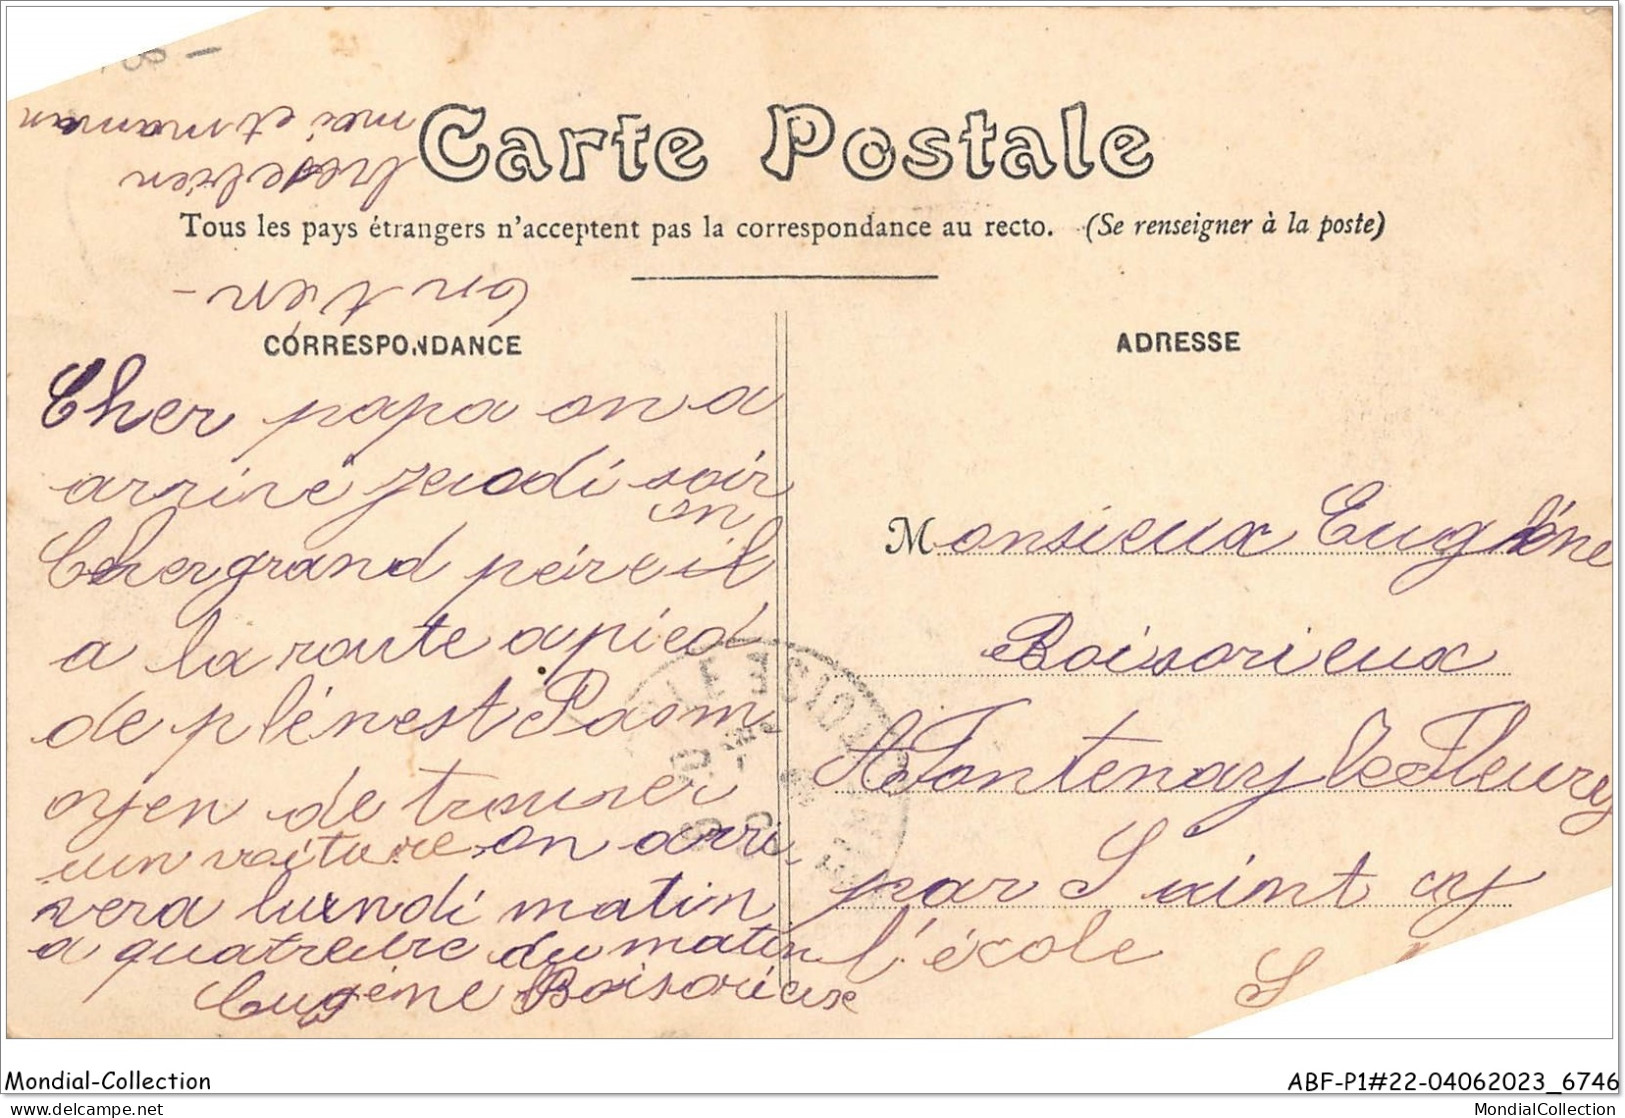 Carte Postale
Tous les pays étrangers n'acceptent pas la correspondance au recto. (Se renseigner à la poste)
CORRESPONDANCE
Cher papa on a
arrivé jeudi soir
en
Cher grand pére il
a la route a pied
de plénest Pasm
oyen de trouver
un voiture on arri
vera lundi matin
a quatre du matin
Eugéne Boisorieux
on tien
tres bien
moi et maman
ADRESSE
Monsieux Eugéne
Boisorieux
A Fontenay le Fleury
par Saint cy
l'école
S
Mondial-Collection
ABF-P1#22-04062023_6746
www.delcampe.net
MondialCollection